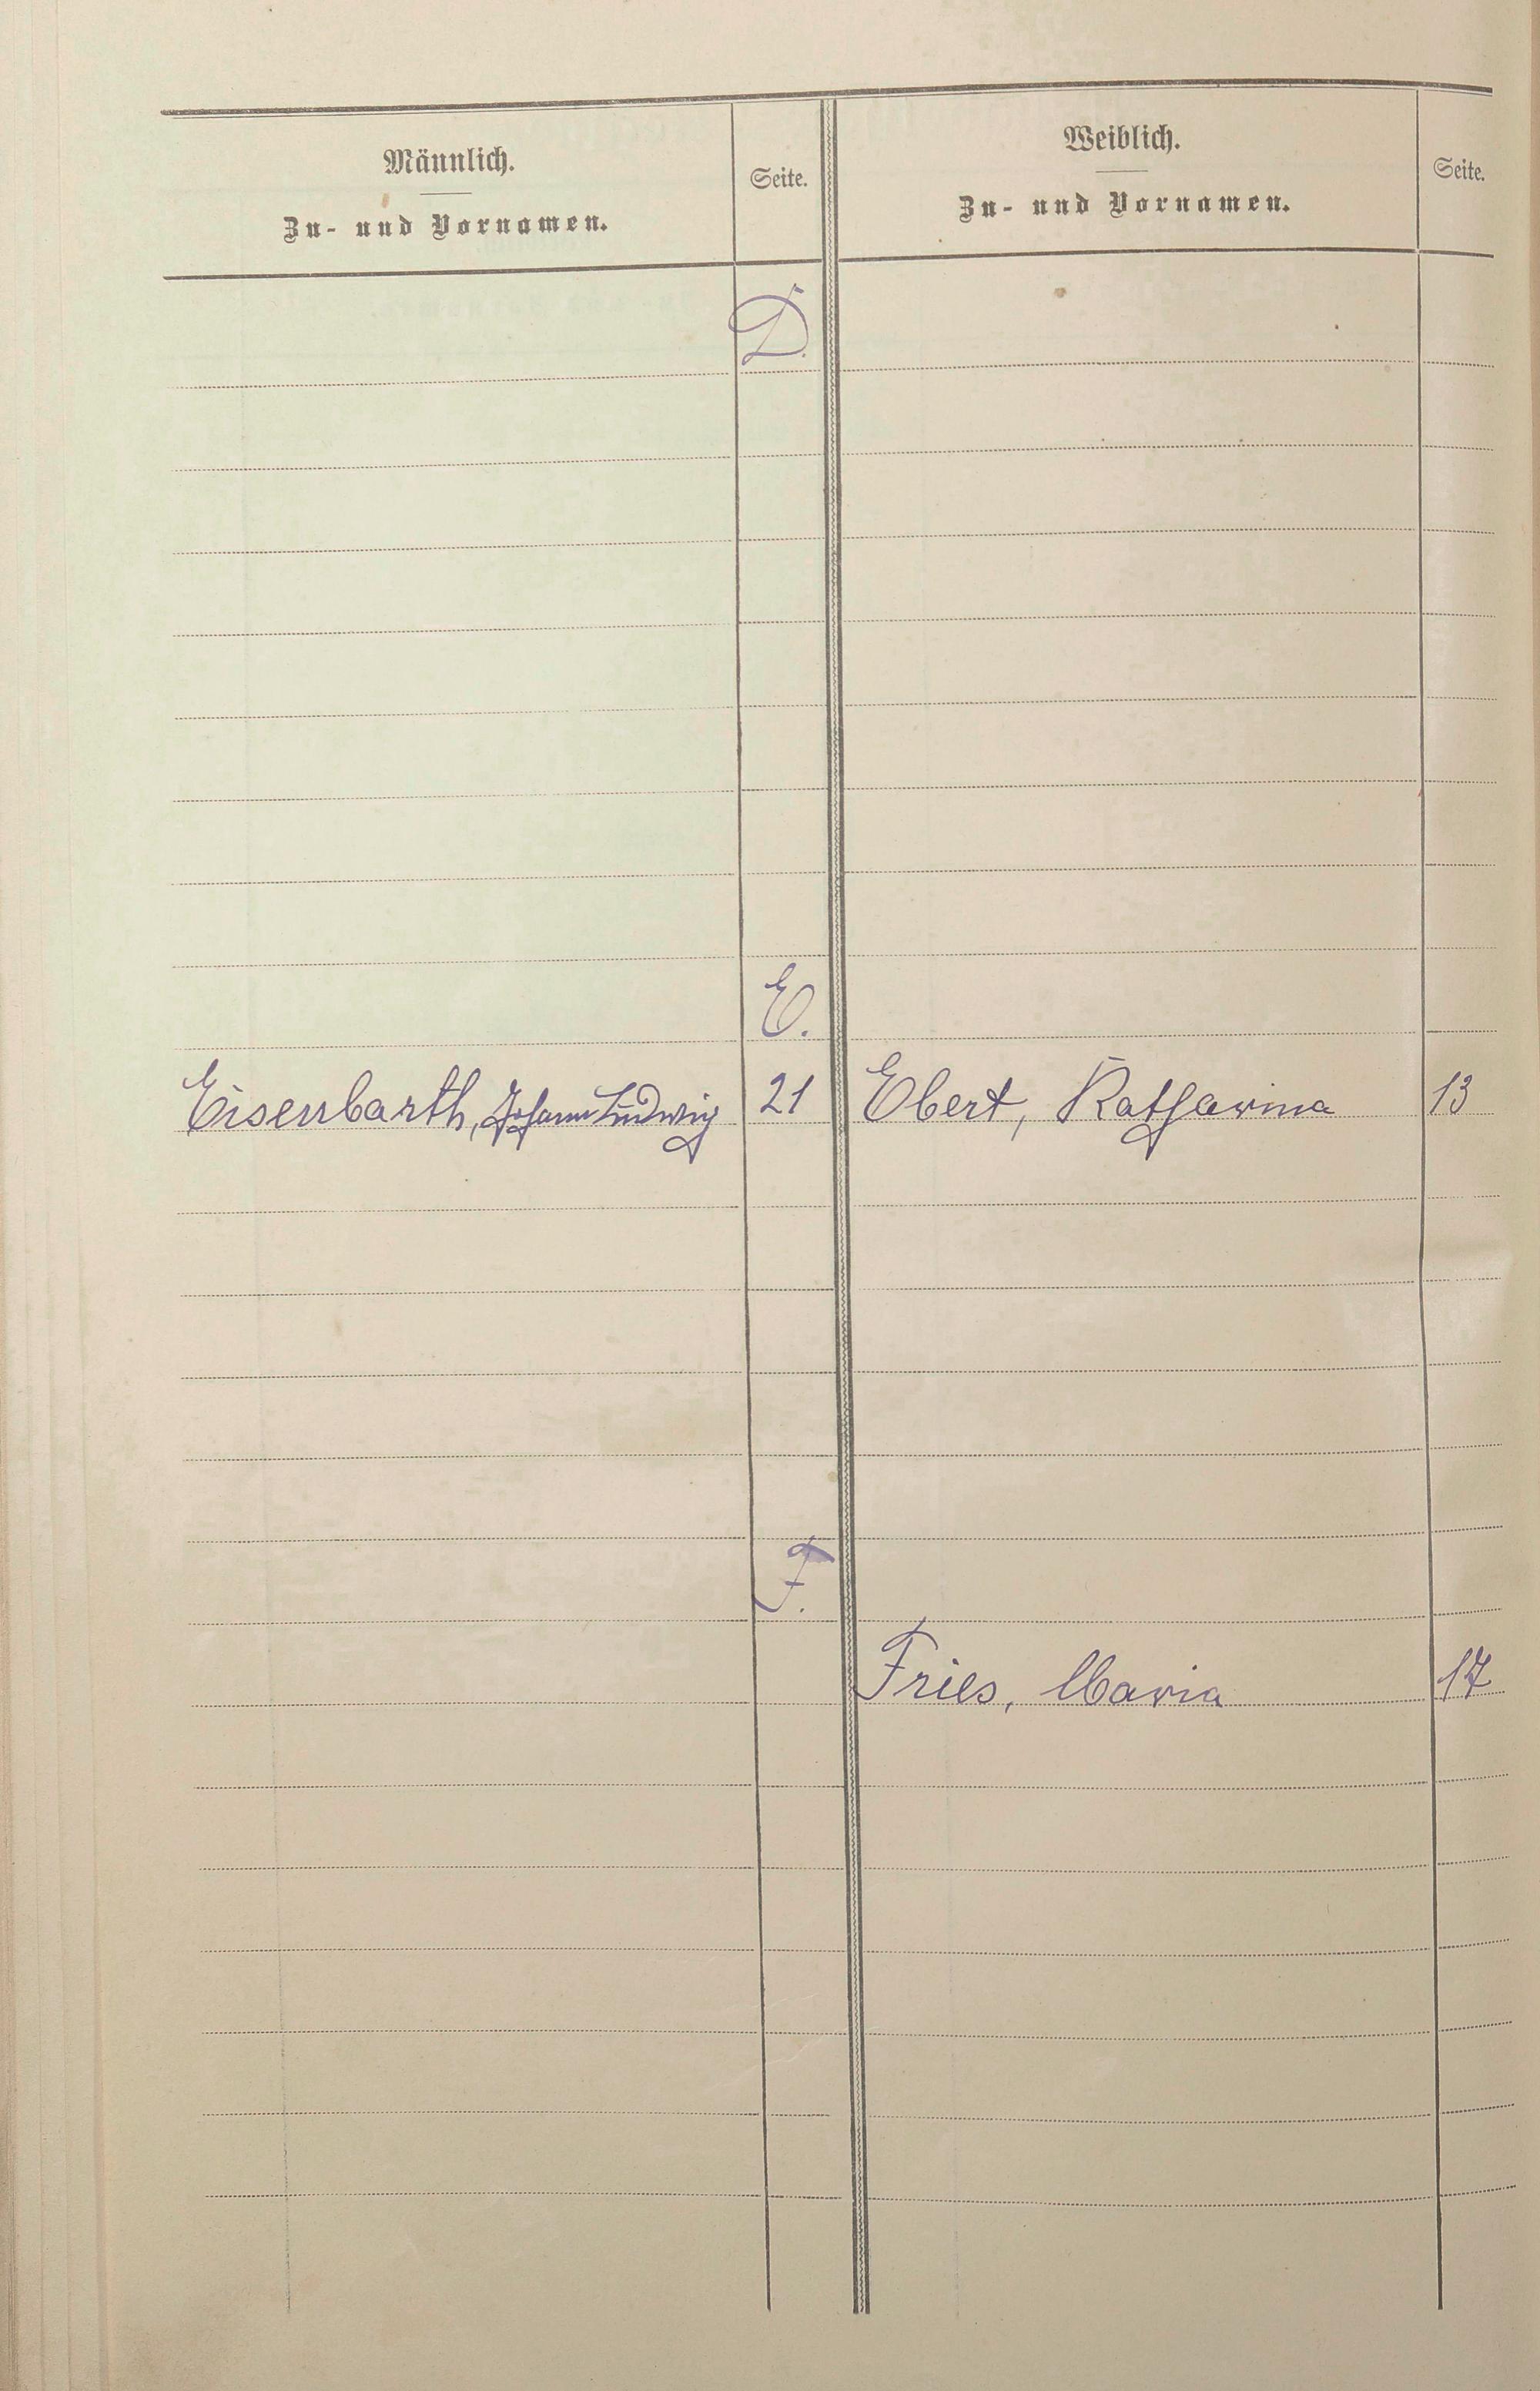 Männlich.
Zu- und Vornamen.
Seite.
Weiblich.
Zu- und Vornamen.
Seite.
D.
E.
Eisenbarth, Johann Ludwig 21 Ebert, Katharina 13
F.
Fries, Maria 17